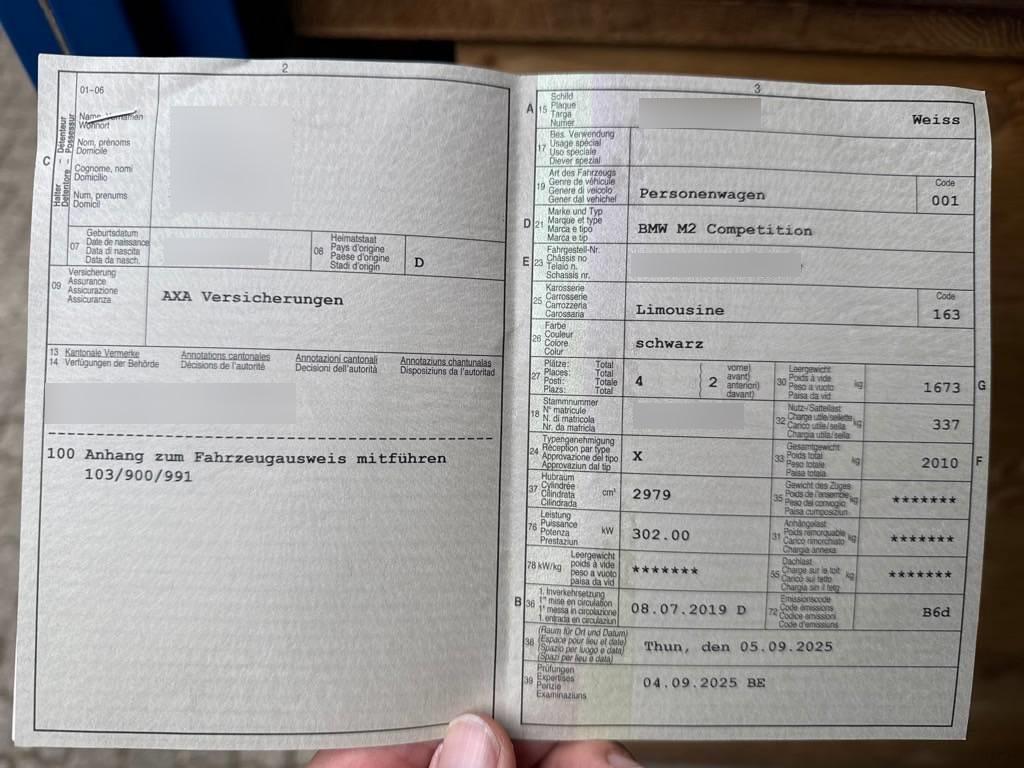 2
01-06
Name, Vornamen
Wohnort
Nom, prénoms
Domicile
Cognome, nomi
Domicilio
Num, prenums
Domicil
C
Halter Détenteur
Detentore Possessur
07
Geburtsdatum
Date de naissance
Data di nascita
Data da nasch.
08
Heimatstaat
Pays d'origine
Paese d'origine
Stadi d'origin
D
09
Versicherung
Assurance
Assicurazione
Assicuranza
AXA Versicherungen
13 Kantonale Vermerke
14 Verfügungen der Behörde
Annotations cantonales
Décisions de l'autorité
Annotazioni cantonali
Decisioni dell'autorità
Annotaziuns chantunalas
Disposiziuns da l'autoritad
100 Anhang zum Fahrzeugausweis mitführen
103/900/991
3
A 15
Schild
Plaque
Targa
Numer
Weiss
17
Bes. Verwendung
Usage spécial
Uso speciale
Diever spezial
19
Art des Fahrzeugs
Genre de véhicule
Genere di veicolo
Gener dal vehichel
Personenwagen
Code
001
D 21
Marke und Typ
Marque et type
Marca e tipo
Marca e tip
BMW M2 Competition
E 23
Fahrgestell-Nr.
Châssis no
Telaio n.
Schassis nr.
25
Karosserie
Carrosserie
Carrozzeria
Carossaria
Limousine
Code
163
26
Farbe
Couleur
Colore
Colur
schwarz
27
Plätze: Total
Places: Total
Posti: Totale
Plazs: Total
4
2
vorne)
avant)
anteriori)
davant)
30
Leergewicht
Poids à vide
Peso a vuoto
Paisa da vid
kg
1673
G
18
Stammnummer
N° matricule
N. di matricola
Nr. da matricla
32
Nutz-/Sattellast
Charge utile/sellette
Carico utile/sella
Chargia utila/sella
kg
337
24
Typengenehmigung
Réception par type
Approvazione del tipo
Approvaziun dal tip
X
33
Gesamtgewicht
Poids total
Peso totale
Paisa totala
kg
2010
F
37
Hubraum
Cylindrée
Cilindrata
Cilindrada
cm³
2979
35
Gewicht des Zuges
Poids de l'ensemble
Peso del convoglio
Paisa cumposiziun
kg
*******
76
Leistung
Puissance
Potenza
Prestaziun
kW
302.00
31
Anhängelast
Poids remorquable
Carico rimorchiato
Chargia annexa
kg
*******
78 kW/kg
Leergewicht
poids à vide
peso a vuoto
paisa da vid
*******
55
Dachlast
Charge sur le toit
Carico sul tetto
Chargia sin il tetg
kg
*******
B 36
1. Inverkehrsetzung
1re mise en circulation
1a messa in circolazione
1. entrada en circulaziun
08.07.2019 D
72
Emissionscode
Code émissions
Codice emissioni
Code d'emissiuns
B6d
38
(Raum für Ort und Datum)
(Espace pour lieu et date)
(Spazio per luogo e data)
(Spazi per lieu e data)
Thun, den 05.09.2025
39
Prüfungen
Expertises
Perizie
Examinaziuns
04.09.2025 BE